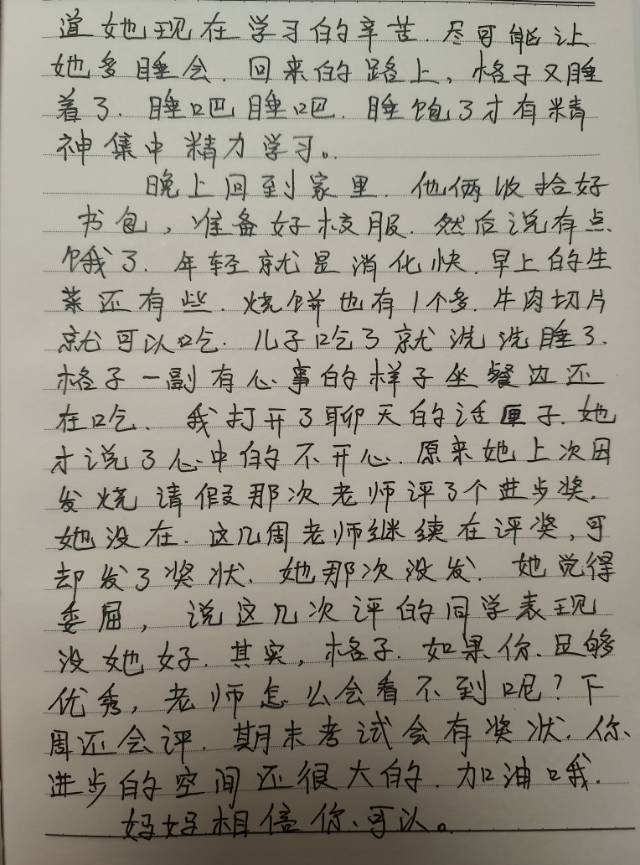 道她现在学习的辛苦.尽可能让
她多睡会.回来的路上,格子又睡
着了.睡吧睡吧.睡饱了才有精
神集中精力学习。.
晚上回到家里.他俩收拾好
书包,准备好校服.然后说有点
饿了.年轻就是消化快.早上的生
菜还有些.烧饼也有1个多.牛肉切片
就可以吃.儿子吃了就洗洗睡了.
格子一副有心事的样子坐餐边还
在吃.我打开了聊天的话匣子.她
才说了心中的不开心.原来她上次因
发烧请假那次老师评了个进步奖.
她没在.这几周老师继续在评奖,可
却发了奖状.她那次没发.她觉得
委屈,说这几次评的同学表现
没她好.其实,格子.如果你.足够
优秀,老师怎么会看不到呢?下
周还会评.期末考试会有奖状.你.
进步的空间还很大的.加油哦.
妈妈相信你、可以。